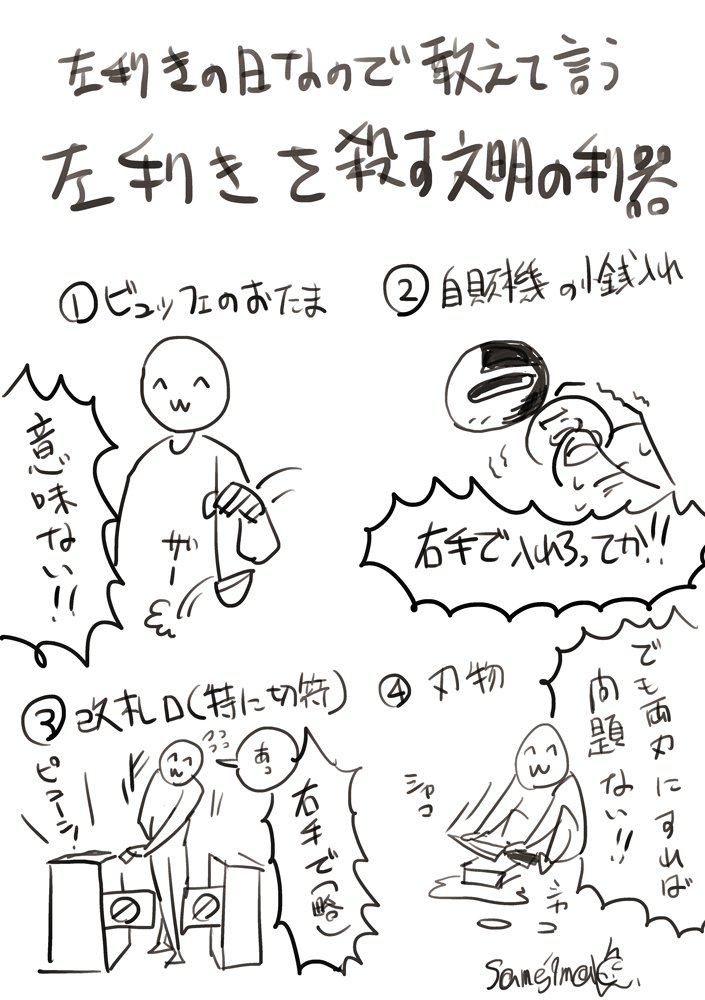 左利きの日なので敢えて言う
左利きを殺す文明の利器
①ビュッフェのおたま
意味ない!!
ザー
②自販機の小銭入れ
右手で入れろってか!!
③改札口(特に切符)
ピンコーン!
コココ
あっ
右手で(略)
④刃物
シャコ
シャコ
でも両刃にすれば
問題ない!!